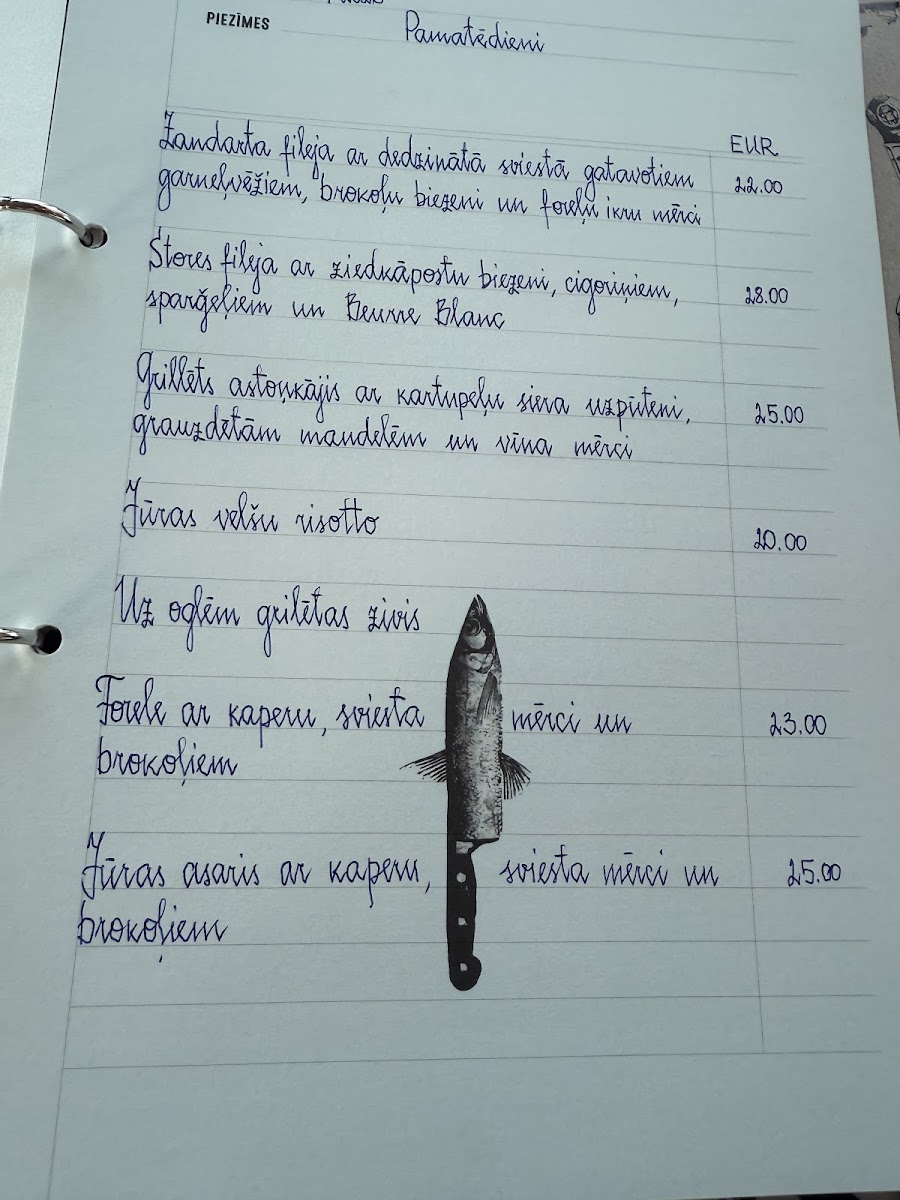 PIEZĪMES
Pamatēdieni
EUR
Zandarta fileja ar dedzinātā sviestā gatavotiem
garneļvēžiem, brokoļu biezeni un foreļu ikru mērci
22.00
Stores fileja ar ziedkāpostu biezeni, cigoriņiem,
sparģeļiem un Beurre Blanc
28.00
Grillēts astoņkājis ar kartupeļu siera uzpūteni,
grauzdētām mandelēm un vīna mērci
25.00
Jūras velšu risotto
20.00
Uz oglēm grilētas zivis
Forele ar kaperu, sviesta mērci un
brokoļiem
23.00
Jūras asaris ar kaperu, sviesta mērci un
brokoļiem
25.00